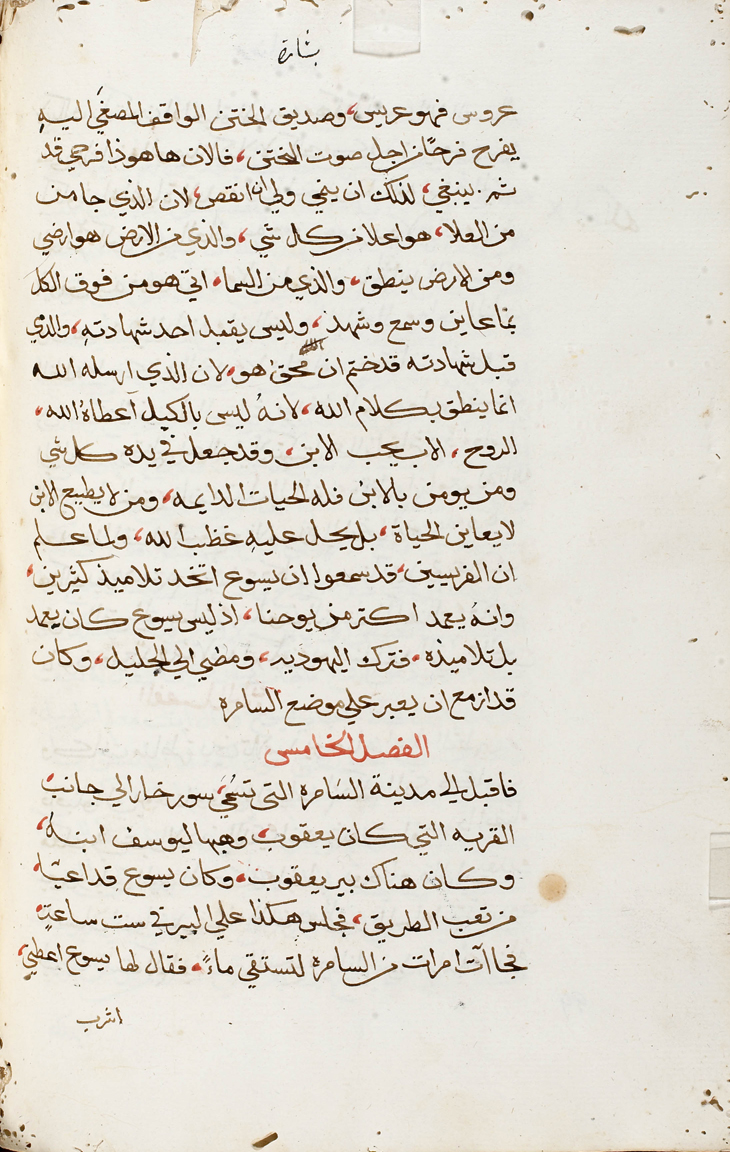 بشارة
عروس فهو عريس، وصديق الختن الواقف المصغي اليه
يفرح فرحًا من اجل صوت الختن، فالان ها هوذا فرحي قد
تم. ينبغي، لذلك ان ينمي ولي ان انقص، لان الذي جا من
من العلا، هو اعلا من كل شي، والذي من الارض هو ارضي
ومن الارض ينطق، والذي من السما، اتي هو من فوق الكل
بما عاين وسمع وشهد، وليس يقبل احد شهادته، والذي
قبل شهادته قد ختم ان محق هو، لان الذي ارسله الله
انما ينطق بكلام الله، لانهُ ليس بالكيل اعطاهُ الله،
الروح، الاب يحب الابن، وقد جعل في يده كل شي
ومن يومن بالابن فله الحيات الدايمه، ومن لا يطيع الابن
لا يعاين الحياة، بل يحل عليه غظب الله، ولما علم
ان الفريسيين، قد سمعوا ان يسوع اتخد تلاميذ كثيرين،
وانهُ يعمد اكتر من يوحنا، اذ ليس يسوع كان يعمد
بل تلاميذه، فترك اليهوديه، ومضي الي الجليل، وكان
قد ازمع ان يعبر علي موضع السامره
الفصل الخامس
فاقبل الي مدينة السامره التي تسمي، سوخار الي جانب
القريه التي كان يعقوب، وهبها ليوسف ابنه،
وكان هناك بير يعقوب، وكان يسوع قد اعيا،
من تعب الطريق، فجلس هكذا علي البير في ست ساعة،
فجاات امرات من السامره لتستقي ماءً، فقال لها يسوع اعطني،
اشرب